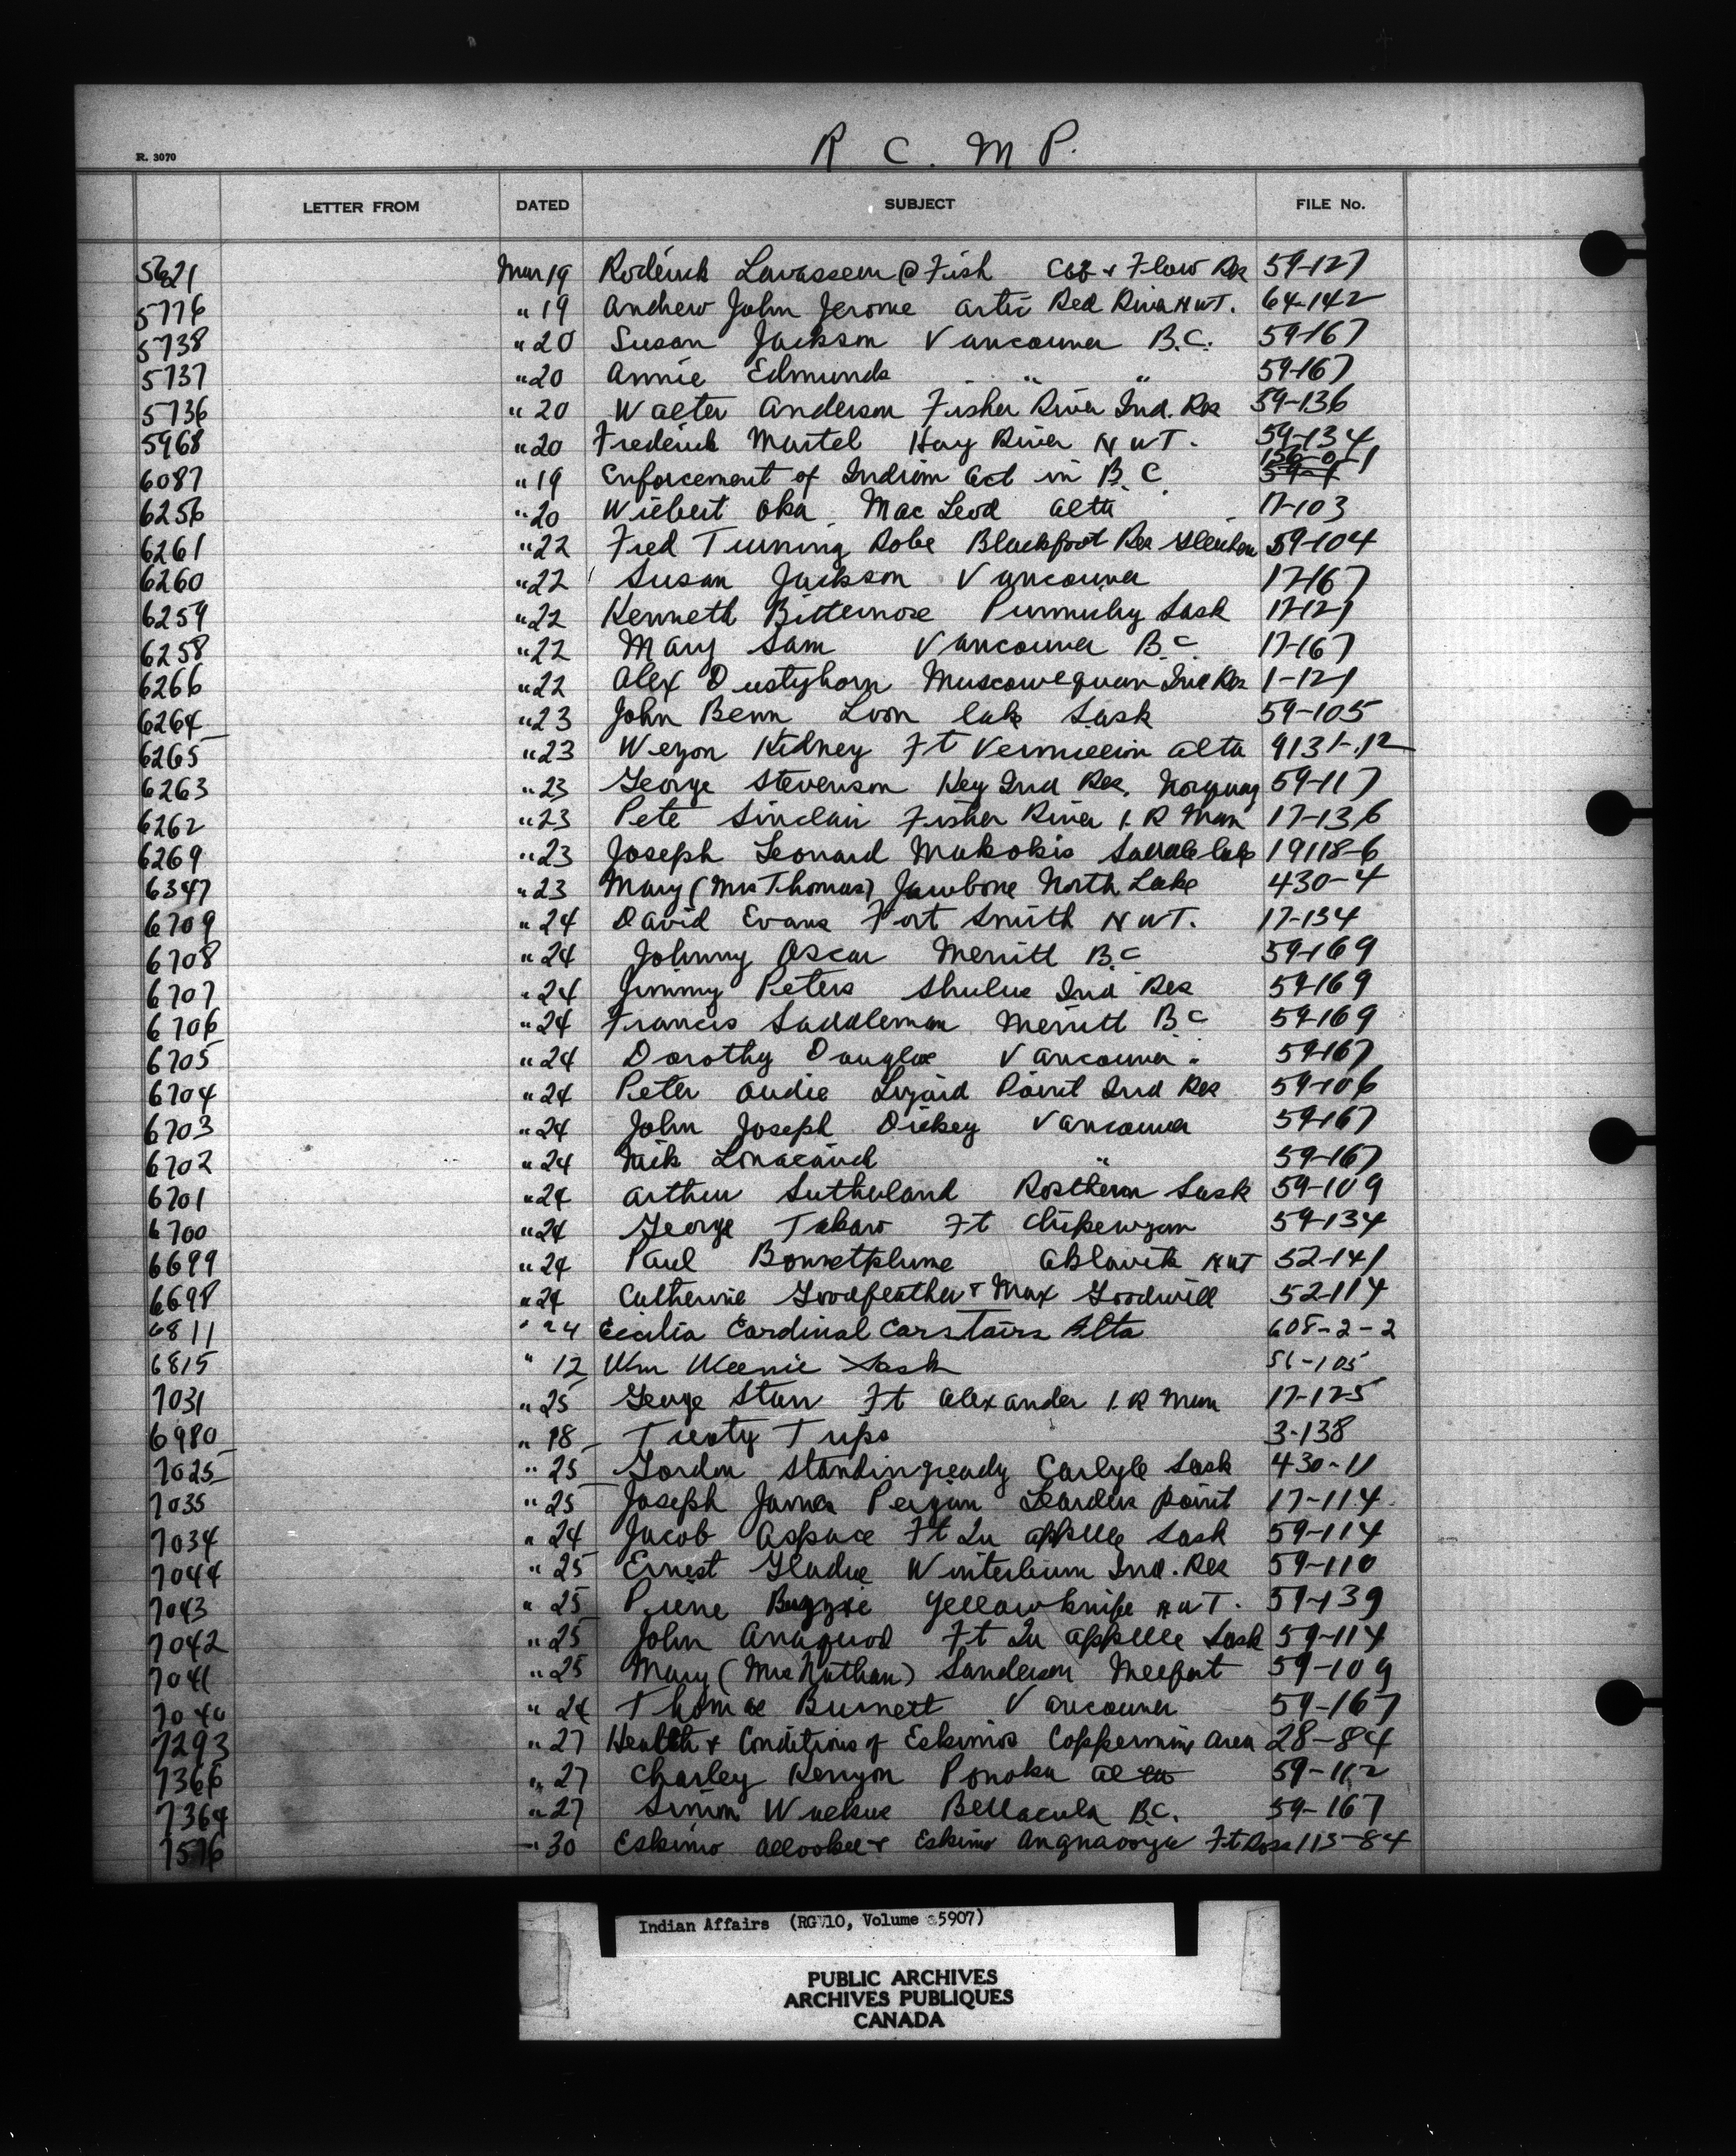 R C. M P.
R. 3070
LETTER FROM DATED SUBJECT FILE No.
5621 Mar 19 Roderick Lavasseur @ Fish & Flow Res 59-127
5776 " 19 Andrew John Jerome Artic Red River NWT. 64-142
5738 " 20 Susan Jackson Vancouver B.C. 59-167
5737 " 20 Annie Edmunds " " 59-167
5736 " 20 Walter Anderson Fisher River Ind. Res 59-136
5968 " 20 Frederick Martel Hay River NWT. 59-134
6087 " 19 Enforcement of Indian Act in B.C. 156-0-1 59-4
6256 " 20 Wilbert Oka MacLeod Alta 17-103
6261 " 22 Fred Running Robe Blackfoot Res Gleichen 59-104
6260 " 22 Susan Jackson Vancouver 17-167
6259 " 22 Kenneth Bitternose Punnichy Sask 17-121
6258 " 22 Mary Sam Vancouver B.C 17-167
6266 " 22 Alex Dustyhorn Muscowequan Ind Res 1-121
6264 " 23 John Benn Loon lake Sask 59-105
6265 " 23 Wezon Kidney Ft Vermillion Alta 9131-12
6263 " 23 George Stevenson Key Ind Res, Norquay 59-117
6262 " 23 Pete Sinclair Fisher River I. R Man 17-136
6269 " 23 Joseph Leonard Makokis Saddle lake 19118-6
6347 " 23 Mary (Mrs Thomas) Jawbone North Lake 430-4
6709 " 24 David Evans Fort Smith NWT. 17-134
6708 " 24 Johnny Oscar Merritt B.C 59-169
6707 " 24 Jimmy Peters Shulus Ind Res 59-169
6706 " 24 Francis Saddleman Merritt B C 59-169
6705 " 24 Dorothy Douglas Vancouver. 59-167
6704 " 24 Peter Audie Lizard Point Ind Res 59-106
6703 " 24 John Joseph Dickey Vancouver 59-167
6702 " 24 Nick " 59-167
6701 " 24 Arthur Sutherland Rosthern Sask 59-109
6700 " 24 George Takaro Ft Chipewyan 59-134
6699 " 24 Paul Bonnetplume Aklavik NWT 52-141
6698 " 24 Catherine Goodfeather & Max Goodwill 52-114
6811 " 24 Cecilia Cardinal Carstairs Alta 608-2-2
6815 " 12 Wm Weenie Sask 51-105
7031 " 25 George Starr Ft Alexander I. R Man 17-125
6980 " 18 Treaty Trips 3-138
7025 " 25 Gordon Standingready Carlyle Sask 430-11
7035 " 25 Joseph James Pezian Learders point 17-114
7034 " 24 Jacob Aspace Ft Qu appelle Sask 59-114
7044 " 25 Ernest Gladue Winterburn Ind. Res 59-110
7043 " 25 Pierre Yellowknife NWT. 59-139
7042 " 25 John Anaquod Ft Qu appelle Sask 59-114
7041 " 25 Mary (Mrs Nathan) Sanderson Meefort 59-109
7040 " 24 Thomas Burnett Vancouver 59-167
7293 " 27 Health & Conditions of Eskimos Coppermine Area 28-84
7366 " 27 Charley Kenyon Ponoka Alta 59-112
7364 " 27 Simon Walkus Bellacula B.C. 59-167
7576 " 30 Eskimo Allookee & Eskimo Angnaooya Ft Ross 115-84
Indian Affairs (RG 10, Volume 5907)
PUBLIC ARCHIVES
ARCHIVES PUBLIQUES
CANADA